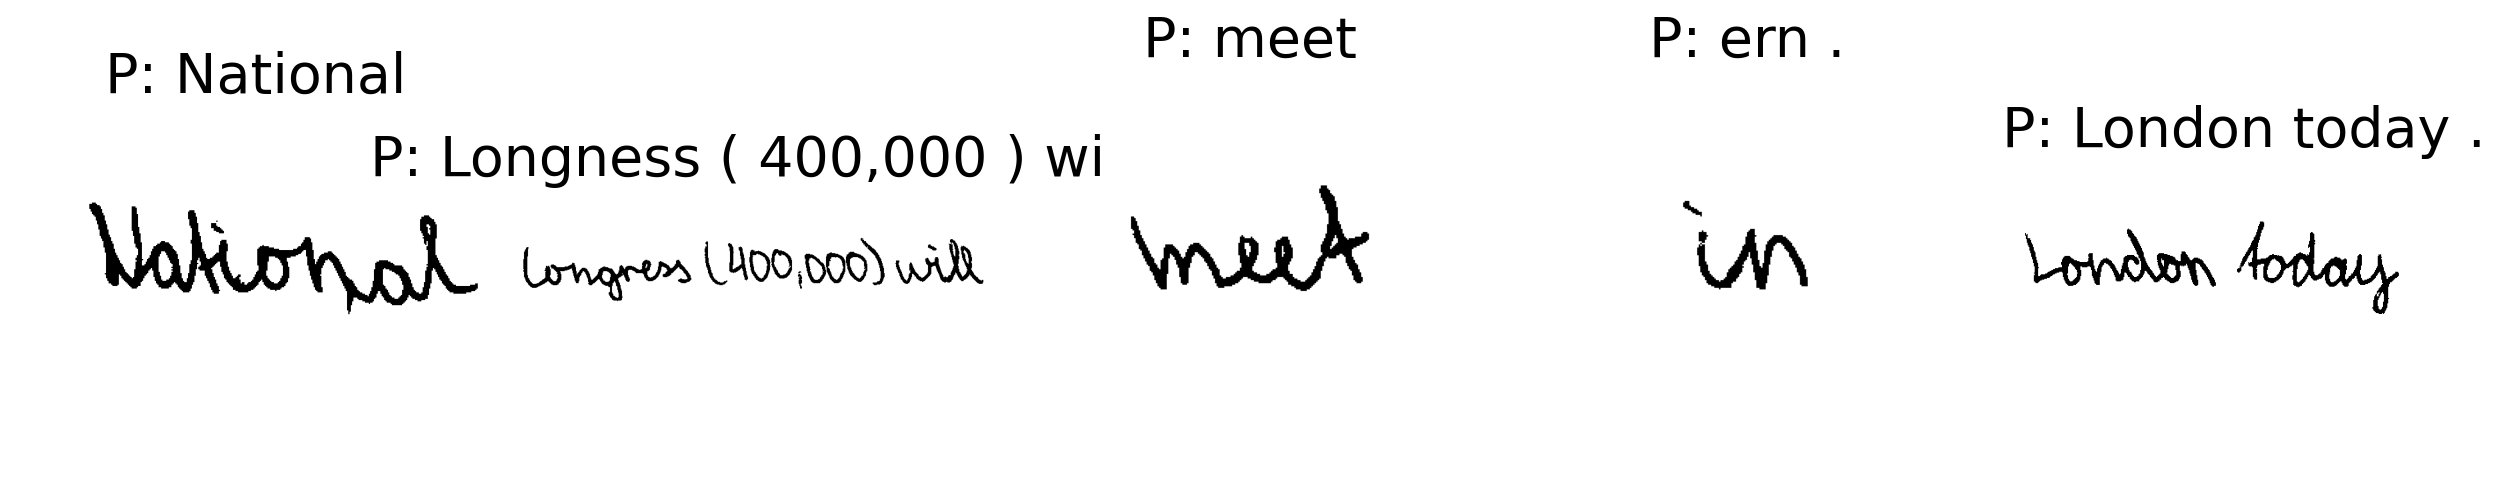 P: National
P: Longness ( 400,000 ) wi
P: meet
P: ern .
P: London today .
National Congress (400,000) will meet in London today